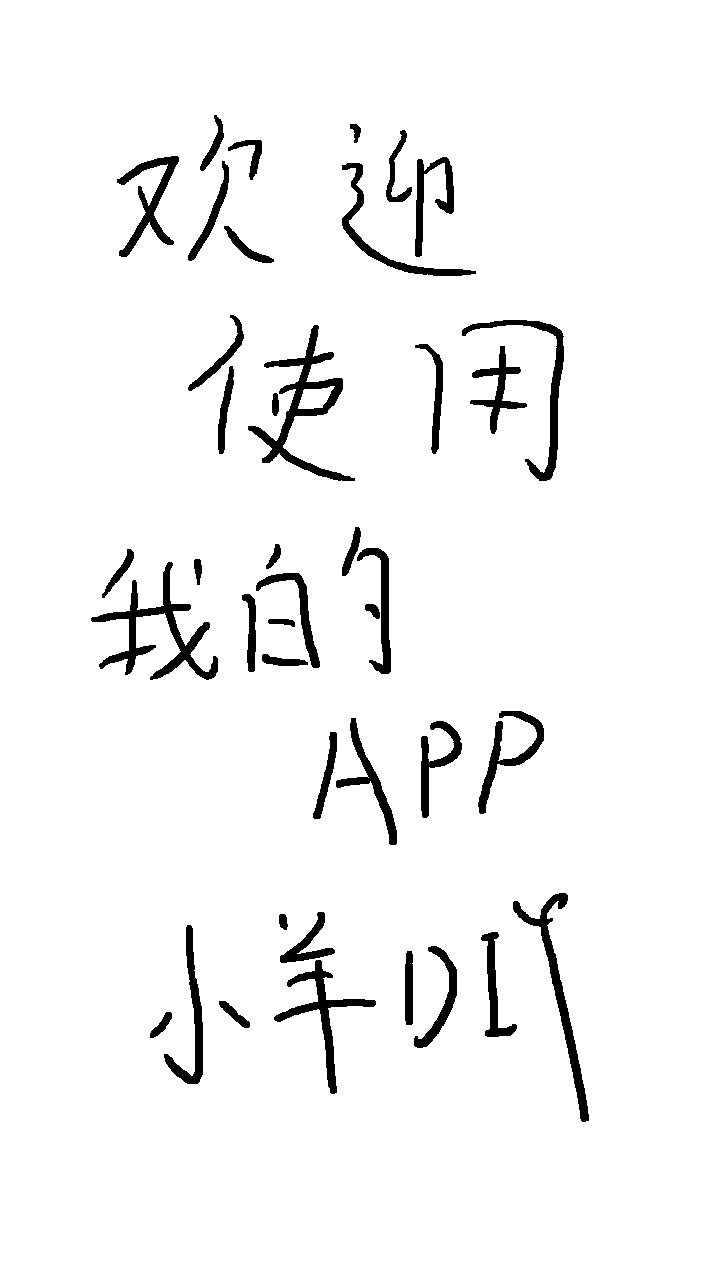 欢迎
使用
我的
APP
小羊DIY